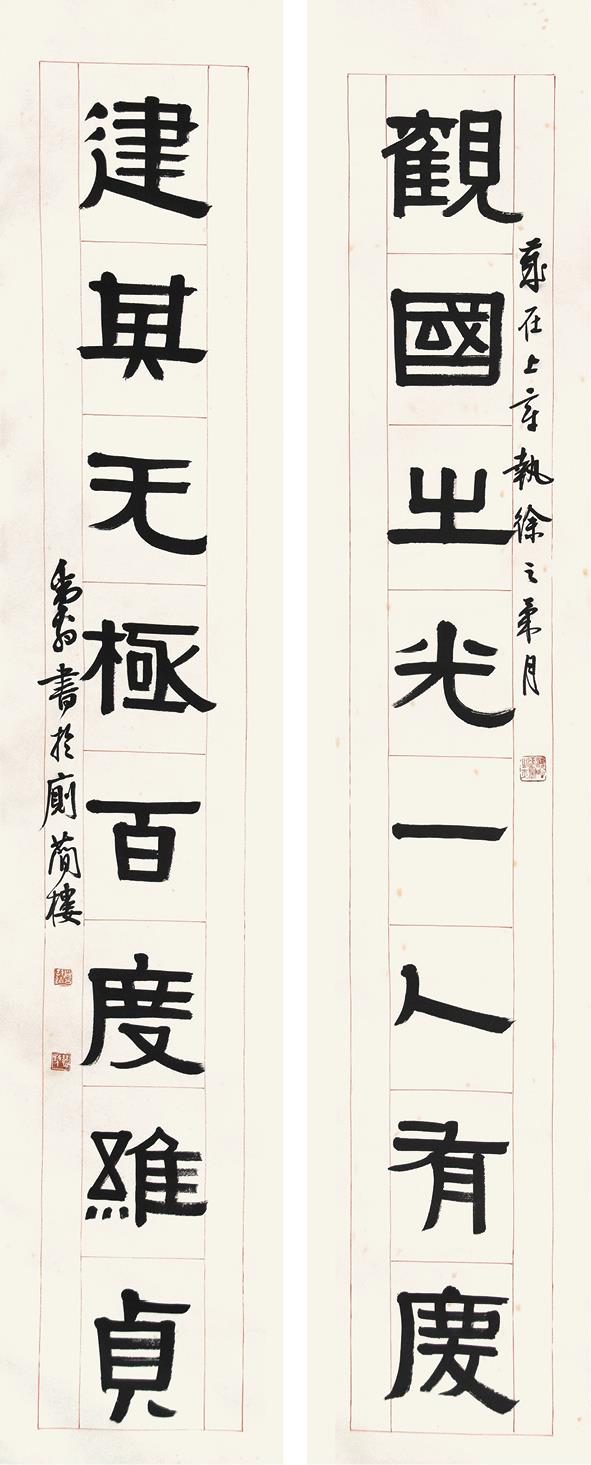 歲在上章執徐之月
觀國之光一人有慶
建其无極百度維貞
翁書於廁簡樓